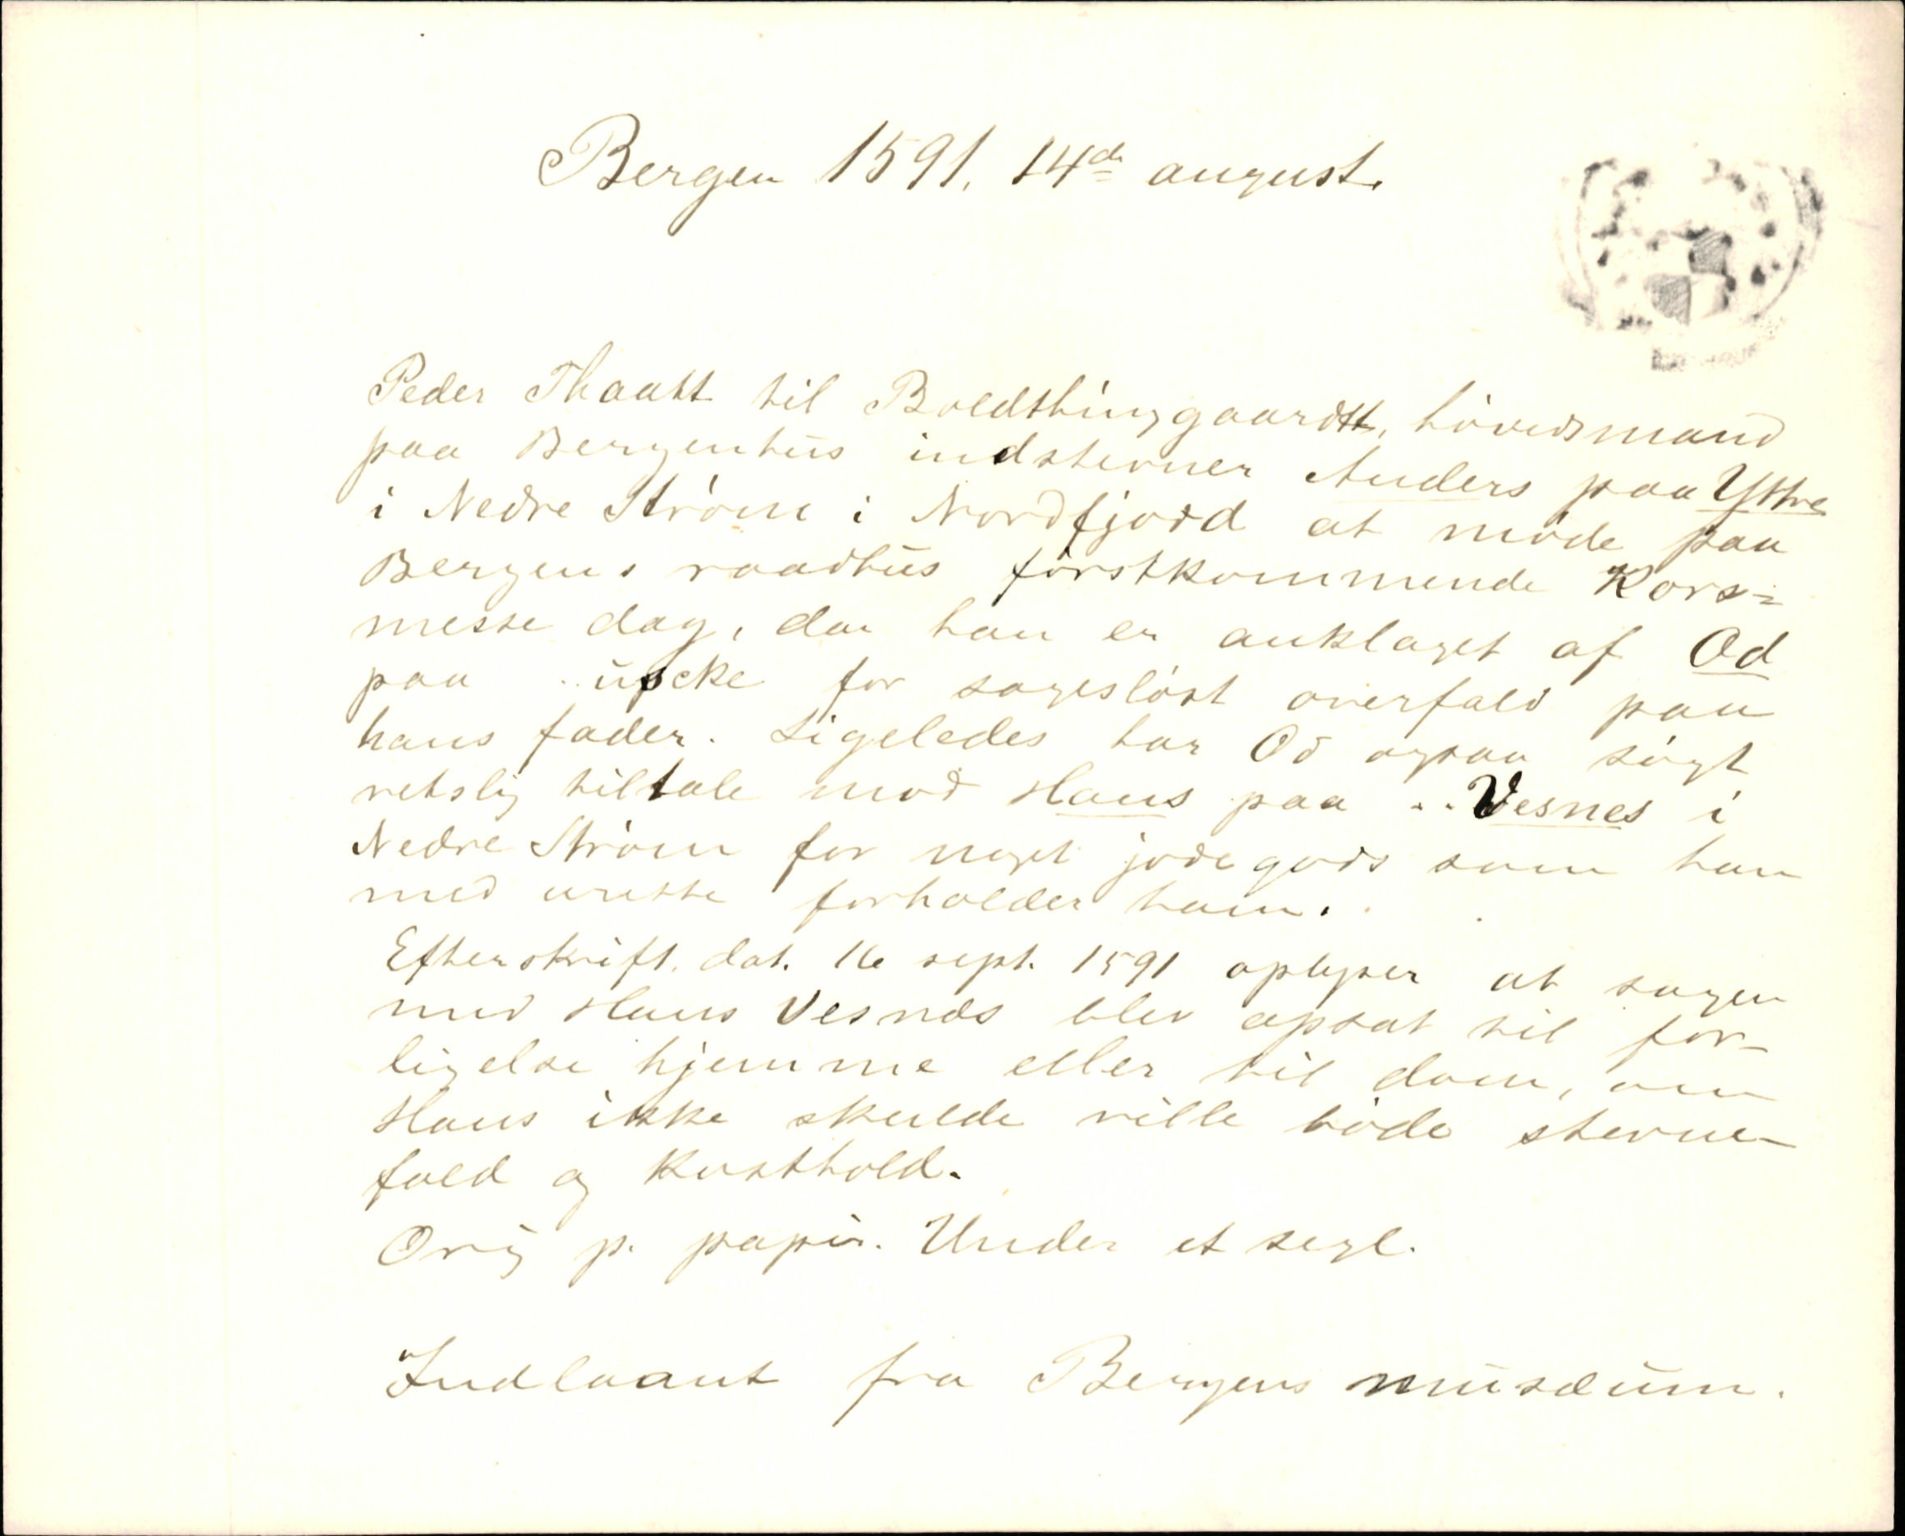 Bergen 1591. 14de august.
Peder Thaatt til Boldthinggaardtt, hövedsmand
paa Bergenhus indstevner Anders paa Yttre
i Nedre Ström i Nordfjord at möde paa
Bergens raadhus förstkommende Kors=
messe dag, da han er anklaget af Od
paa ..upcke for sageslöst overfald paa
hans fader. Ligeledes har Od ogsaa sögt
retslig tiltale mod Hans paa ..Vesnes i
Nedre Ström for noget jodegods som han
med urette forholder ham.
Efterskrift. dat. 16 sept. 1591 oplyser at sagen
mod Hans Vesnes blev opsat til for-
ligelse hjemme eller til dom, om
Hans ikke skulde ville böde stevne-
fald og Kosthold.
Orig p. papir. Under et segl.
Indlaant fra Bergens musæum.